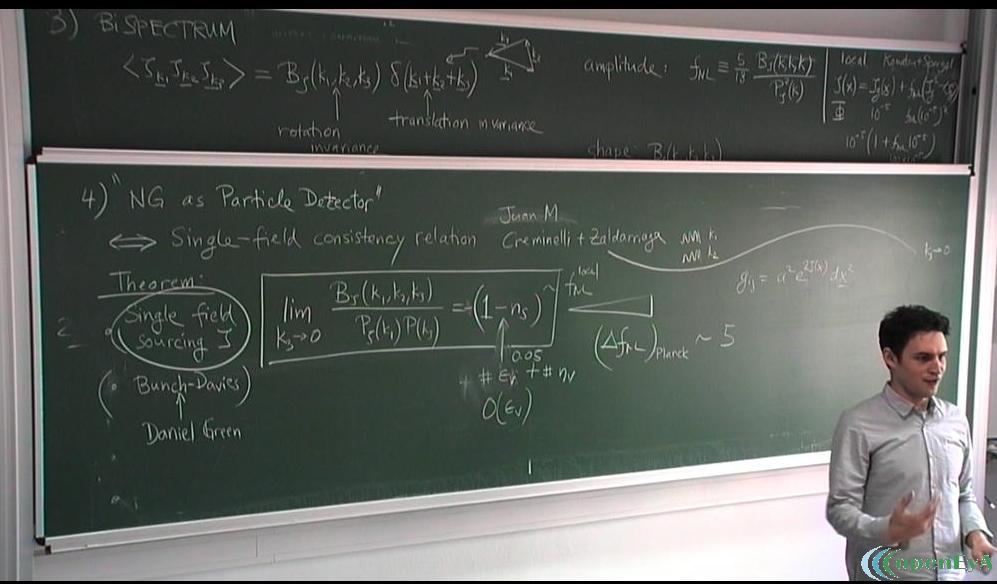 3) BISPECTRUM
<ζ_k1 ζ_k2 ζ_k3> = B_ζ(k₁,k₂,k₃) δ(k₁+k₂+k₃)
rotation
invariance
translation invariance
amplitude: f_NL ≡ 5/18 B_ζ(k,k,k)/P_ζ²(k)
shape: B_ζ(k₁,k₂,k₃)
local
10⁻⁵
10⁻⁵(1 + f_NL 10⁻⁵)
4) "NG as Particle Detector"
⟺ Single-field consistency relation
Juan M
Creminelli + Zaldarriaga
k₁
k₂
k₃→0
g_ij = a² e^{2ζ(x)} dx²
Theorem:
• Single field
sourcing ζ
(• Bunch-Davies)
Daniel Green
lim k₃→0 B_ζ(k₁,k₂,k₃)/P_ζ(k₁)P(k₃) = (1-n_s) ~ f_NL^local
0.05
# ε_v + # η_v
O(ε_v)
(Δf_NL)_Planck ~ 5